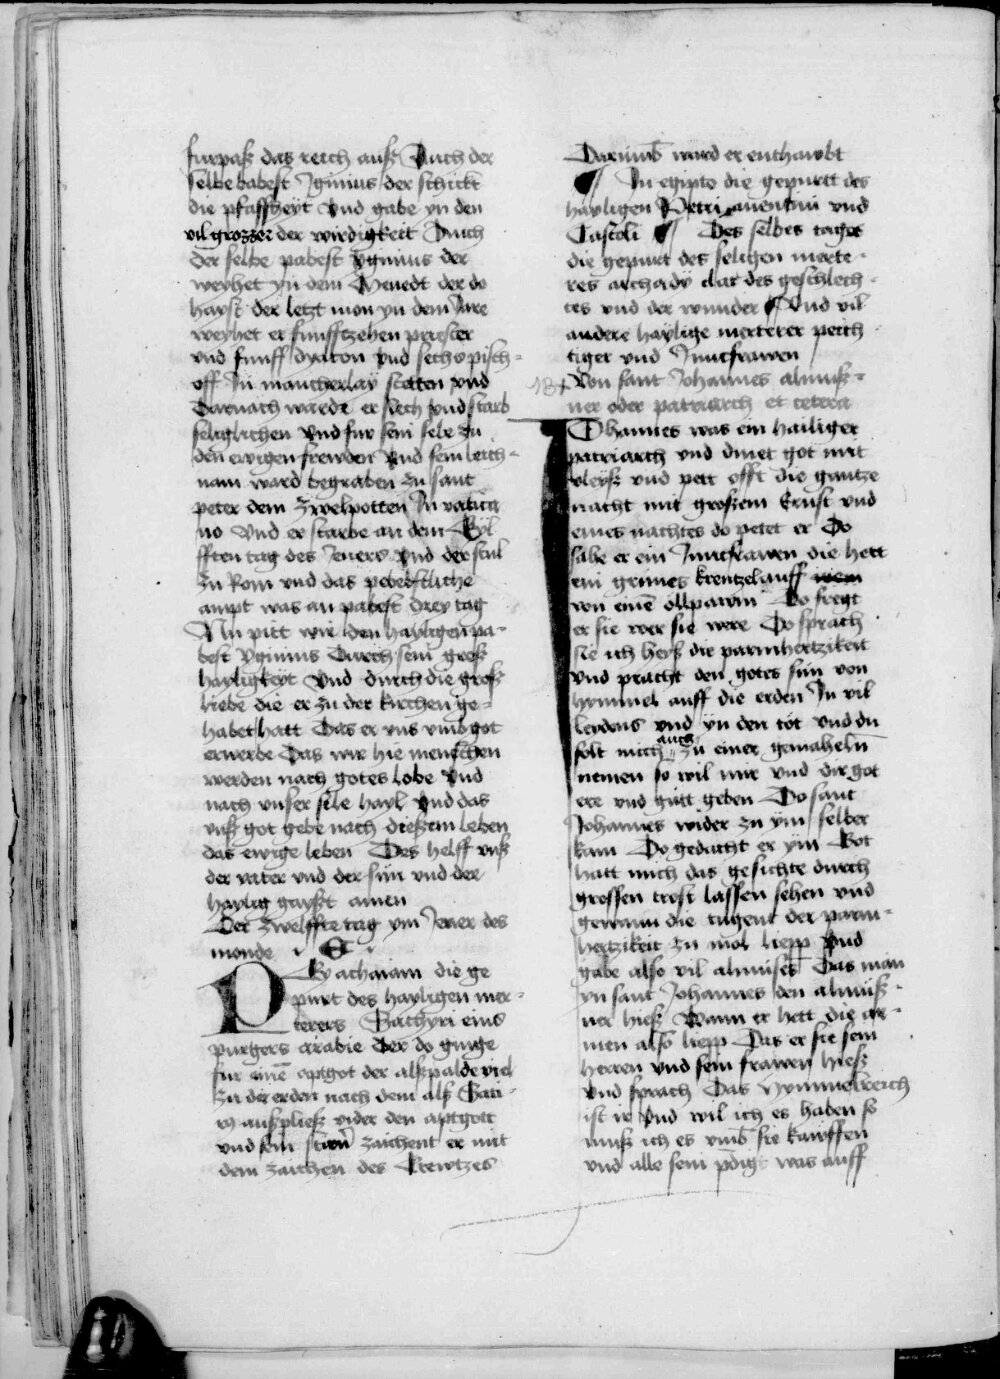 furpasz das reich ausz Auch der
selbe babest Iginius der schickt
die pfaffheyt vnd gabe yn den
vil grozzer der wirdigkeit Auch
der selbe pabest yginius der
weyhet yn dem Aduendt der do
hayst der letzt mon yn dem Jare
weyhet er funfftzehen priester
vnd funff dyacon vnd sechs pisch=
off In mancherlay steten vnd
Darnach warde er siech vnd starb
seliglichen Vnd fur sein sele zu
den ewigen frewden Vnd sein leich=
nam ward begraben zu sant
peter dem zwelpotten In vatica
no Vnd er starbe an dem Eyl
fften tag des Jeners Vnd der stul
zu Rom vnd das pebestliche
ampt was an pabest drey tag
Nu pitt wir den hayligen pa=
best yginius Durch sein grosz
hayligkeyt Vnd durch die grosz
liebe die er zu der kirchen ge=
habet hatt Das er vns vmb got
erwerbe Das wir hie menschen
werden nach gotes lobe Vnd
nach vnser sele hayl Vnd das
vnsz got gebe nach dieszem leben
das ewige leben Des helff vnsz
der vater vnd der sun vnd der
haylig gayst amen
Der zwelffte tag ym Jener des
monde E
By achaiam die ge
purt des hayligen mer=
terers Sathyri eins
purgers arabie Der do ginge
fur eine aptgot der alszpalde viel
zu der erden nach dem alsz Sati=
auszpliesz wider den aptgott
vnd sein stirn zaichent er mit
dem zaichen des Krewtzes
Darumb ward er enthawbt
¶ In egipto die gepurtt des
hayligen Petri auentini vnd
Castoli ¶ Des selbes tages
die gepurt des seligen merte=
res archady clar des geschlech=
tes vnd der wunder ¶ Vnd vil
andere haylige merterer peich
tiger vnd Junckfrawen
Von sant Johannes almusz=
ner oder patriarch et cetera
Ohannes was ein hailiger
patriarch vnd dinet got mit
vleysz vnd pett offt die gantze
nacht mit groszem Ernst vnd
eines nachtes do petet er Do
sahe er ein Junckfrawen die hett
ein grunes krentzel auff
von eine ollpawm Do fregt
er sie wer sie were Do sprach
sie ich heysz die parmhertzikeit
Vnd pracht den gotes sun von
hymmel auff die erden In vil
leydens vnd yn den tot vnd du
solt mich auch zu einer gemaheln
nemen so wil mir vnd dir got
ere vnd gutt geben Do sant
Johannes wider zu ym selber
kam Do gedacht er ym Got
hatt mich das gesichte durch
grossen trost lassen sehen vnd
gewann die tugent der parm=
hertzikeit zu mol liepp Vnd
gabe also vil almuses Das man
yn sant Johannes den almusz=
ner hiesz Wann er hett die ar=
men also liepp Das er sie sein
herren Vnd sein frawen hiesz
Vnd sprach Das Hymmelreich
ist ir Vnd wil ich es haben so
musz ich es vmb sie kawffen
vnd alle sein pdigt was auff